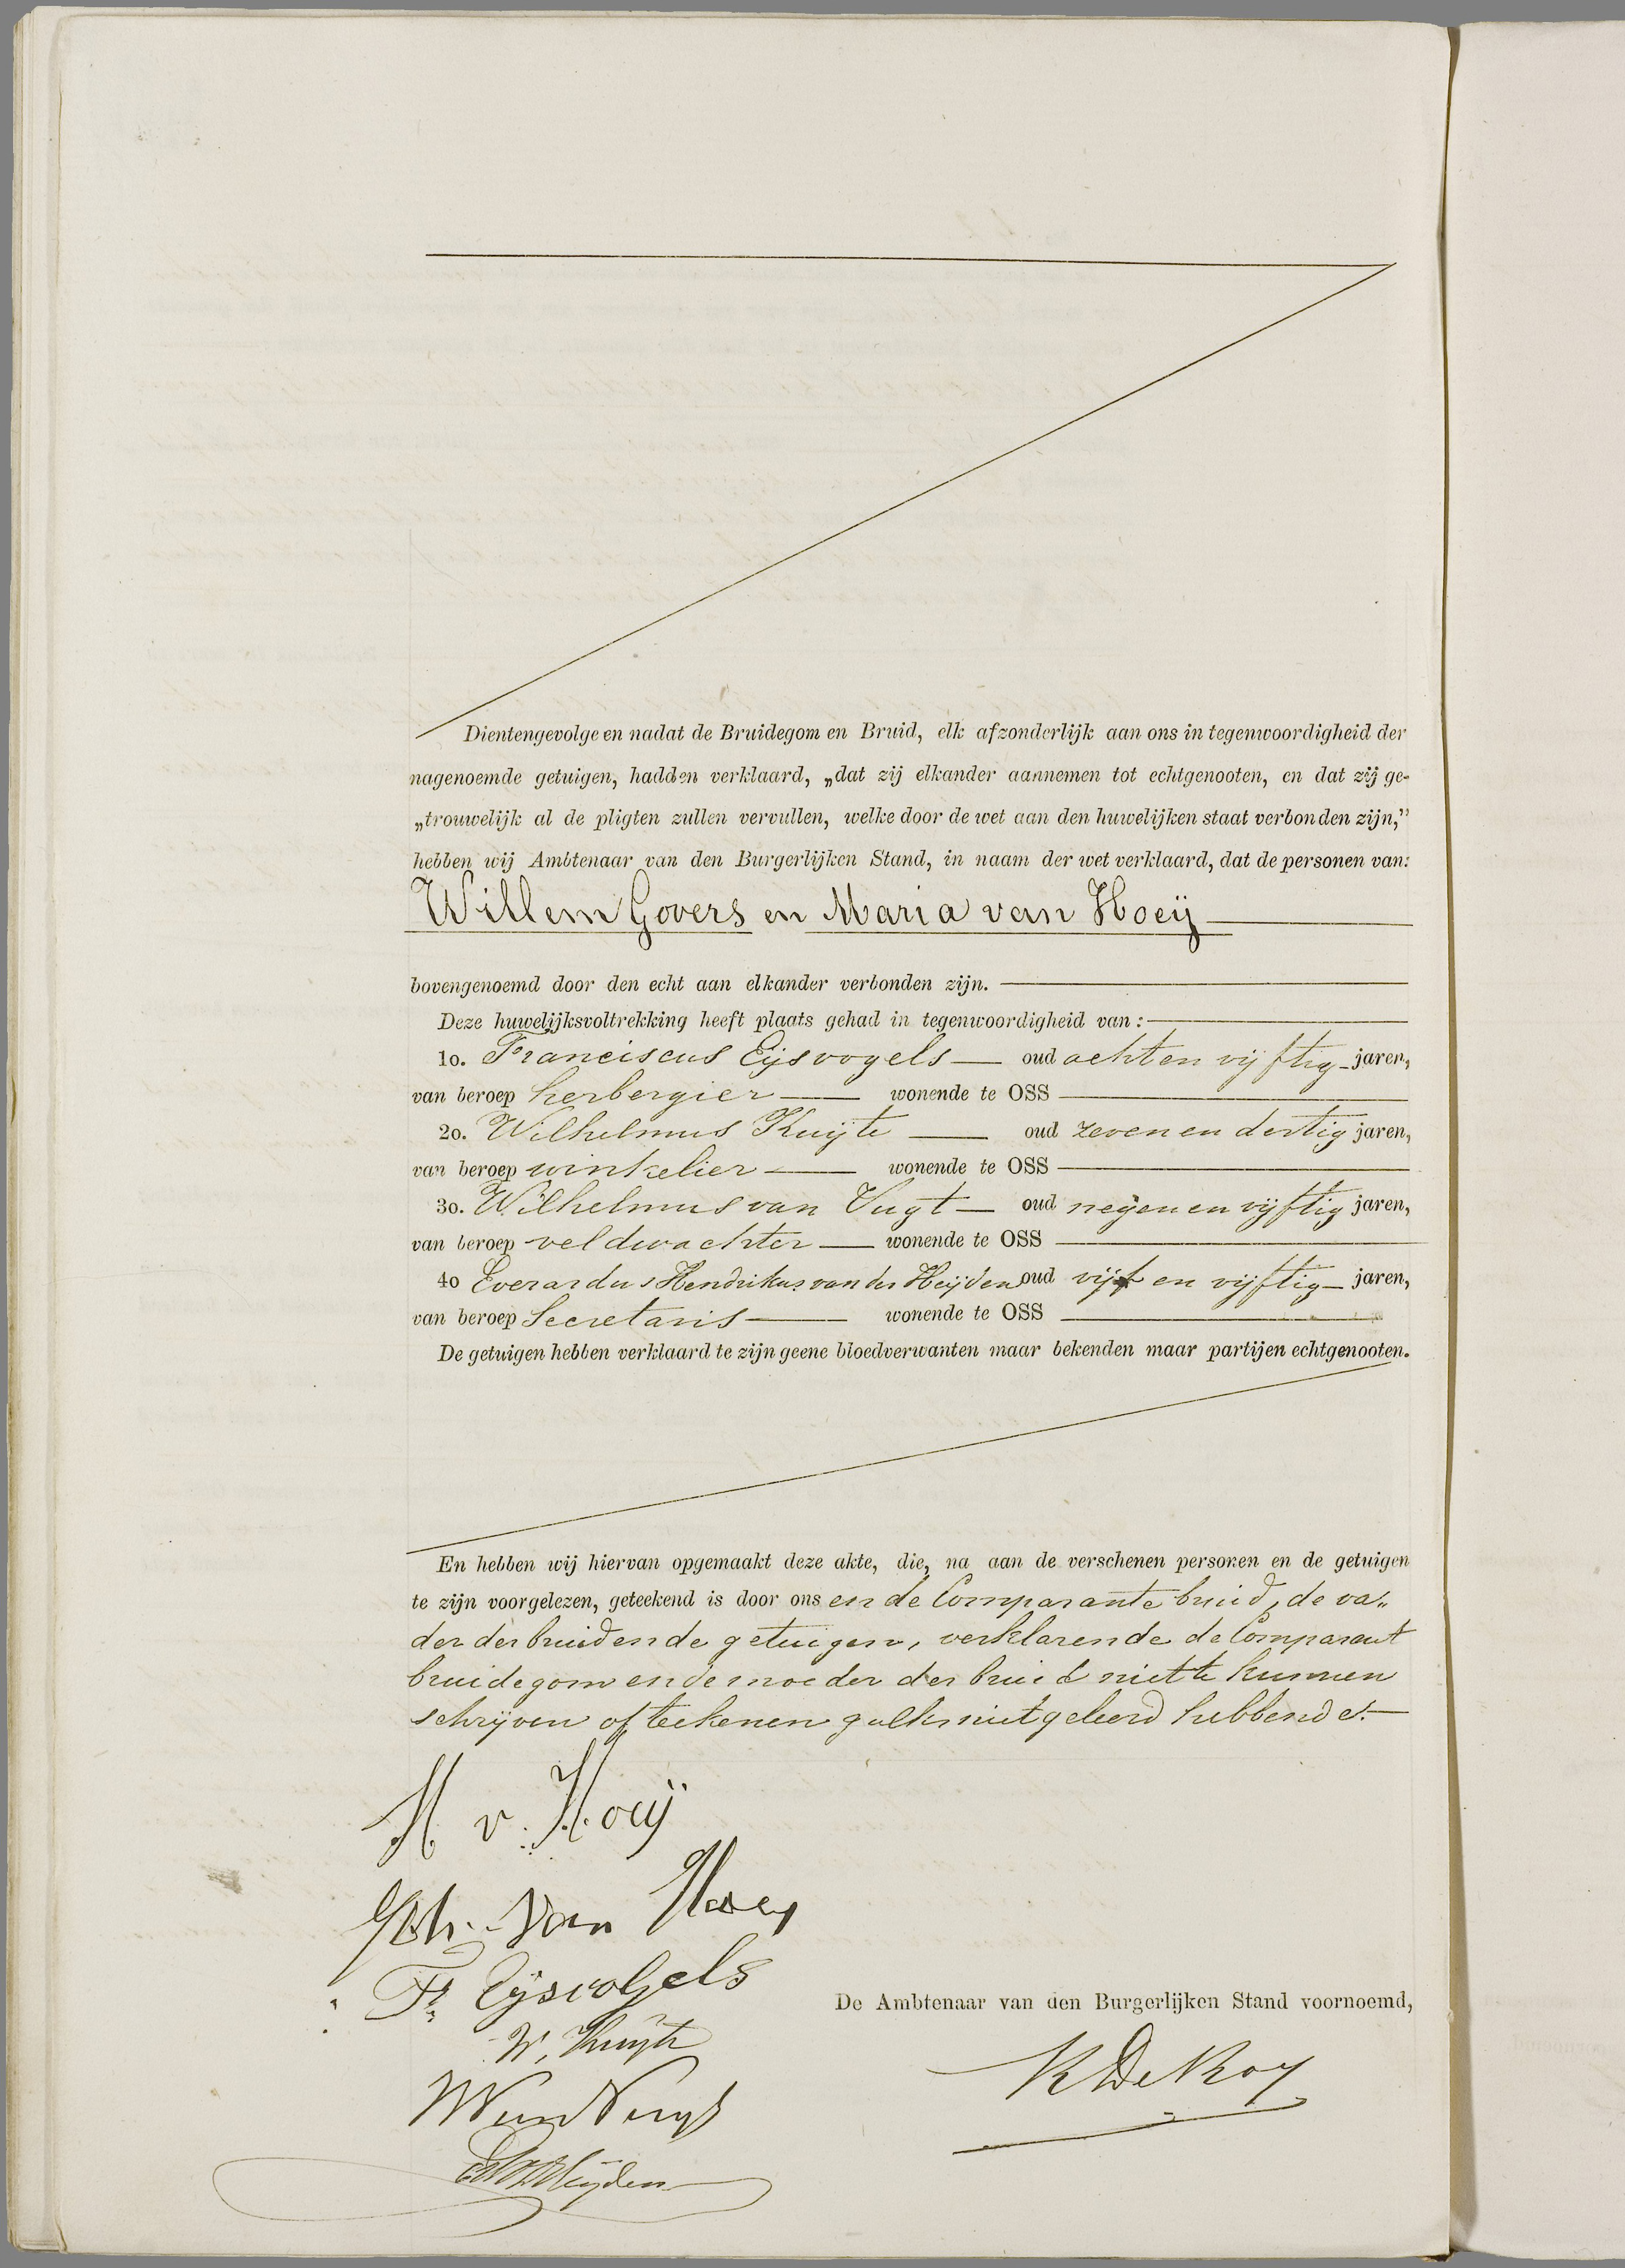 Dientengevolge en nadat de Bruidegom en Bruid, elk afzonderlijk aan ons in tegenwoordigheid der
nagenoemde getuigen, hadden verklaard, „dat zij elkander aannemen tot echtgenooten, en dat zij ge-
„trouwelijk al de pligten zullen vervullen, welke door de wet aan den huwelijken staat verbonden zijn,”
hebben wij Ambtenaar van den Burgerlijken Stand, in naam der wet verklaard, dat de personen van:
Willem Govers en Maria van Hoeij
bovengenoemd door den echt aan elkander verbonden zijn.
Deze huwelijksvoltrekking heeft plaats gehad in tegenwoordigheid van:
1o. Franciscus Eijsvogels oud acht en vijftig jaren,
van beroep herbergier wonende te OSS
2o. Wilhelmus Kuijte oud zeven en dertig jaren,
van beroep winkelier wonende te OSS
3o. Wilhelmus van Vugt oud negen en vijftig jaren,
van beroep veldwachter wonende te OSS
4o Everardus Hendrikus van der Heijden oud vijf en vijftig jaren,
van beroep Secretaris wonende te OSS
De getuigen hebben verklaard te zijn geene bloedverwanten maar bekenden maar partijen echtgenooten.
En hebben wij hiervan opgemaakt deze akte, die, na aan de verschenen personen en de getuigen
te zijn voorgelezen, geteekend is door ons en de Comparante bruid, de va„
der der bruid en de getuigen, verklarende de Comparant
bruidegom en de moeder der bruid niet te kunnen
schrijven of teekenen zulks niet geleerd hebbende.
M v. Hoeij
van Hoey
Fr. Eijsvogels
W. Kuijte
W van Vugt
vd Heijden
De Ambtenaar van den Burgerlijken Stand voornoemd,
K De Roy